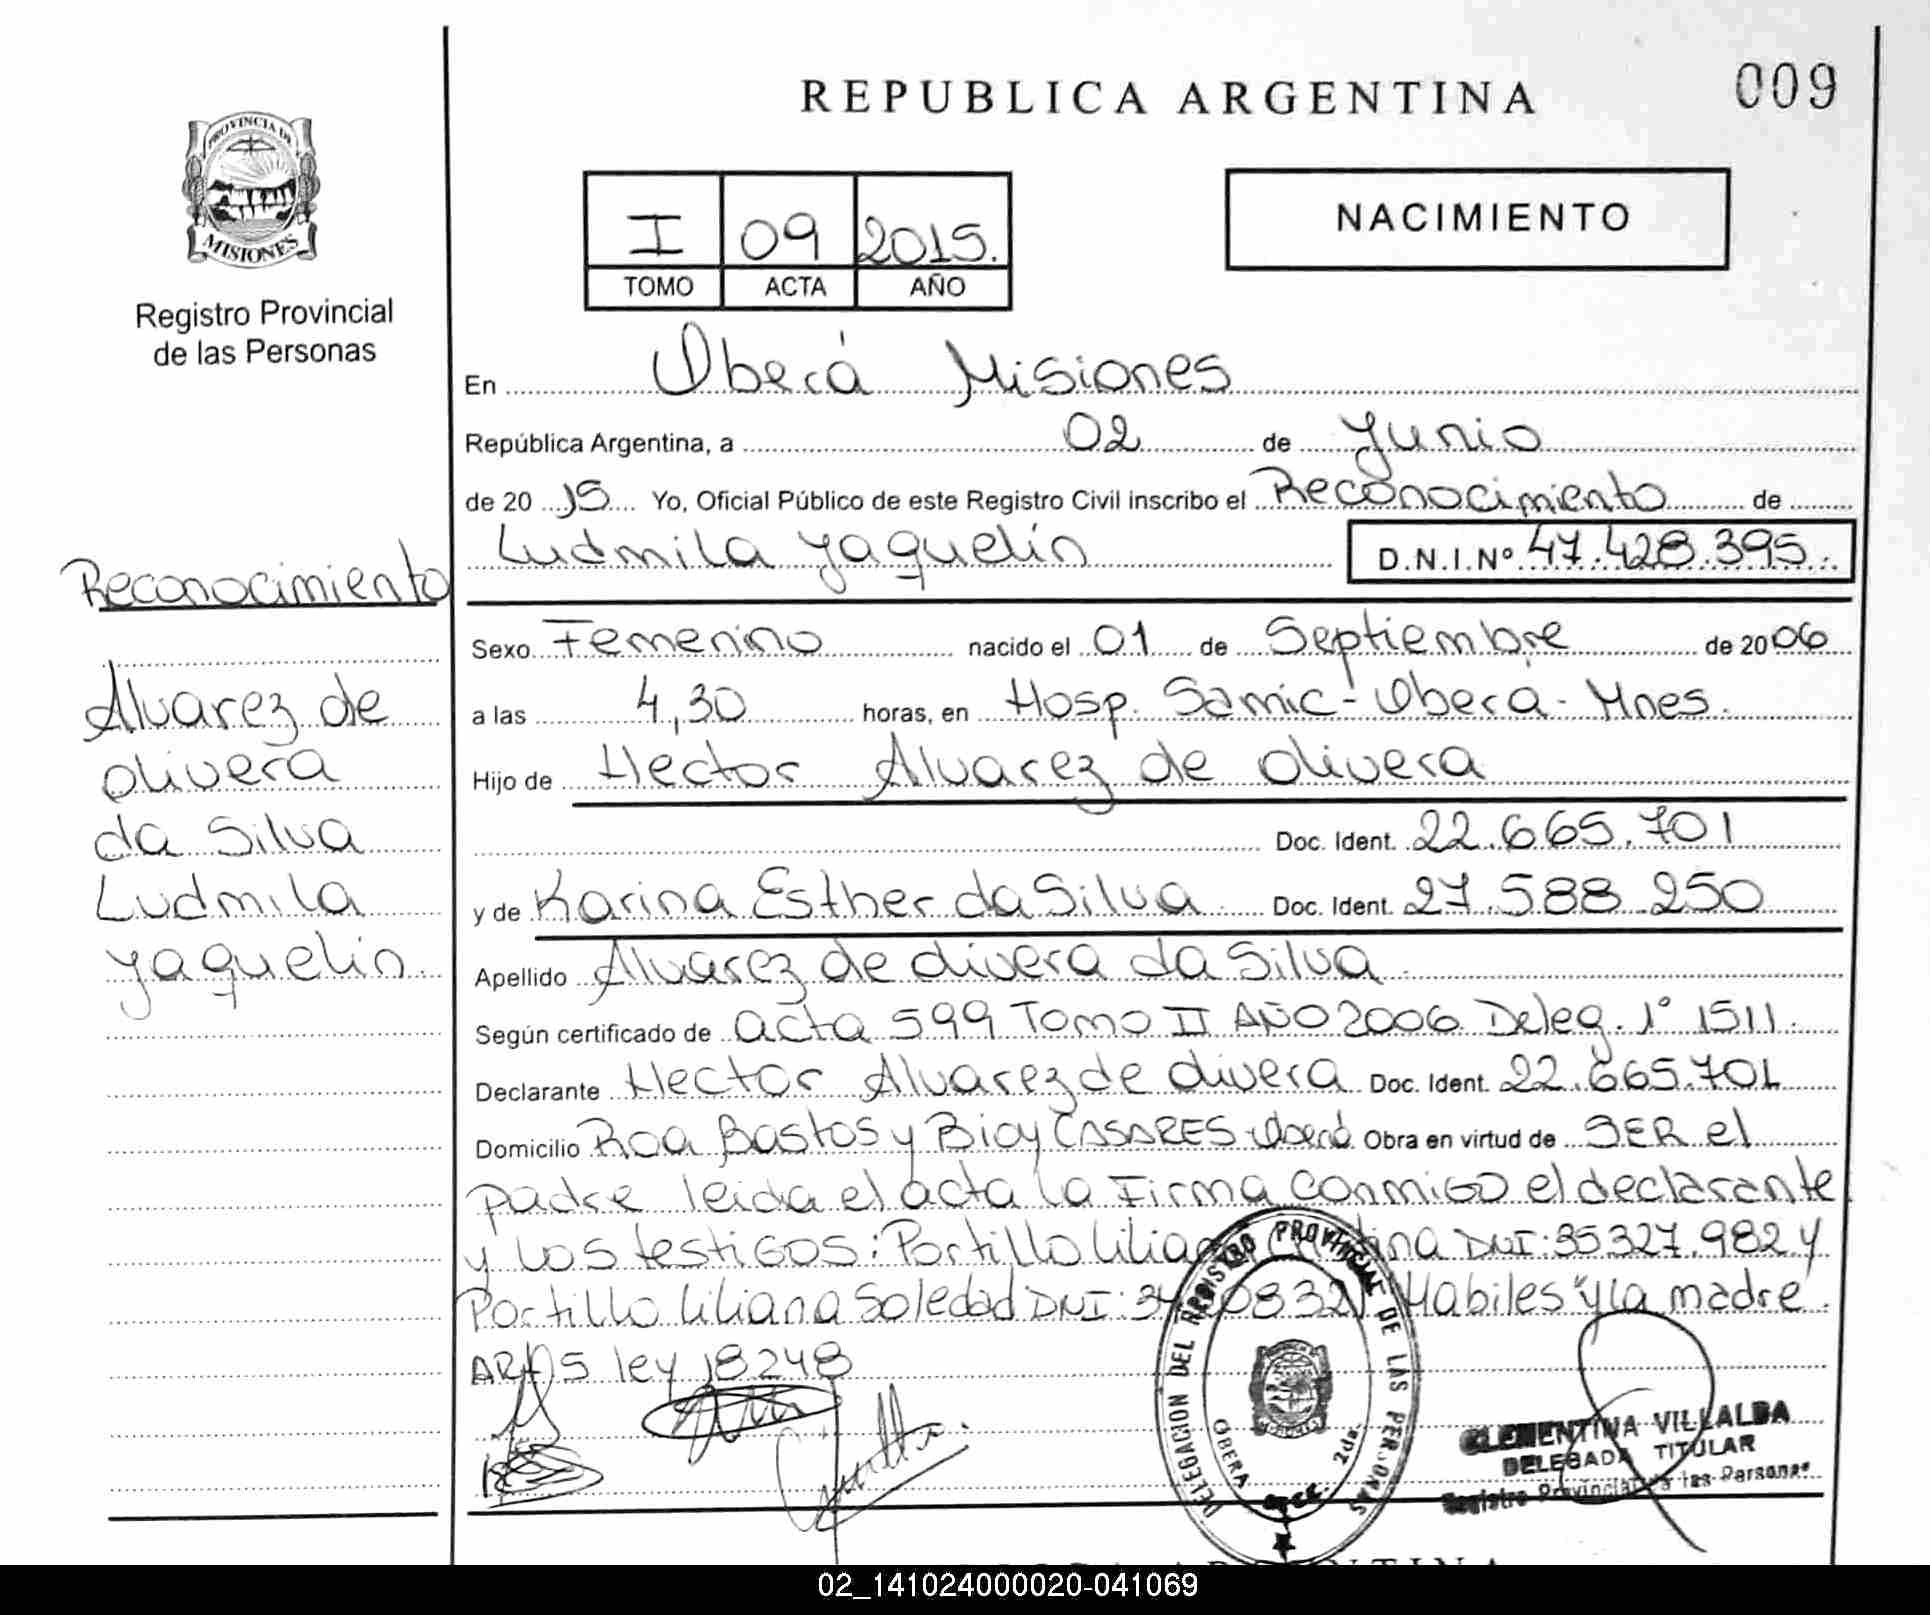 REPUBLICA ARGENTINA
009
PROVINCIA DE
MISIONES
Registro Provincial
de las Personas
I 09 2015.
TOMO ACTA AÑO
NACIMIENTO
En Oberá Misiones
República Argentina, a 02 de Junio
de 20 15 Yo, Oficial Público de este Registro Civil inscribo el Reconocimiento de
Ludmila Yaquelin D.N.I.Nº 47.428.395.
Reconocimiento
Alvarez de
olivera
da Silva
Ludmila
Yaquelin.
Sexo Femenino nacido el 01 de Septiembre de 2006
a las 4,30 horas, en Hosp. Samic-Obera-Mnes.
Hijo de Hector Alvarez de olivera
Doc. Ident. 22.665.701
y de Karina Esther da Silva Doc. Ident. 27.588.250
Apellido Alvarez de olivera da Silva
Según certificado de acta 599 Tomo II AÑO 2006 Deleg. 1° 1511.
Declarante Hector Alvarez de olivera Doc. Ident. 22.665.701
Domicilio Roa Bastos y Bioy CASARES Oberá Obra en virtud de SER el
padre leida el acta la Firma conmigo el declarante
y los testigos: Portillo DNI: 35327.982 y
Portillo liliana Soledad DNI: Habiles y la madre.
ley 18248
DELEGACION DEL REGISTRO PROVINCIAL DE LAS PERSONAS
OBERA 2da.
CLEMENTINA VILLALBA
DELEGADA TITULAR
Registro Provincial de las Personas
02_141024000020-041069